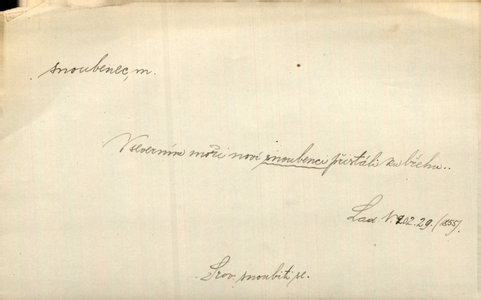 snoubenec, m.
V severním moři noví snoubenci přistáli ku břehu..
Lad V. 202. 29. (1855).
Srov. snoubiti se.